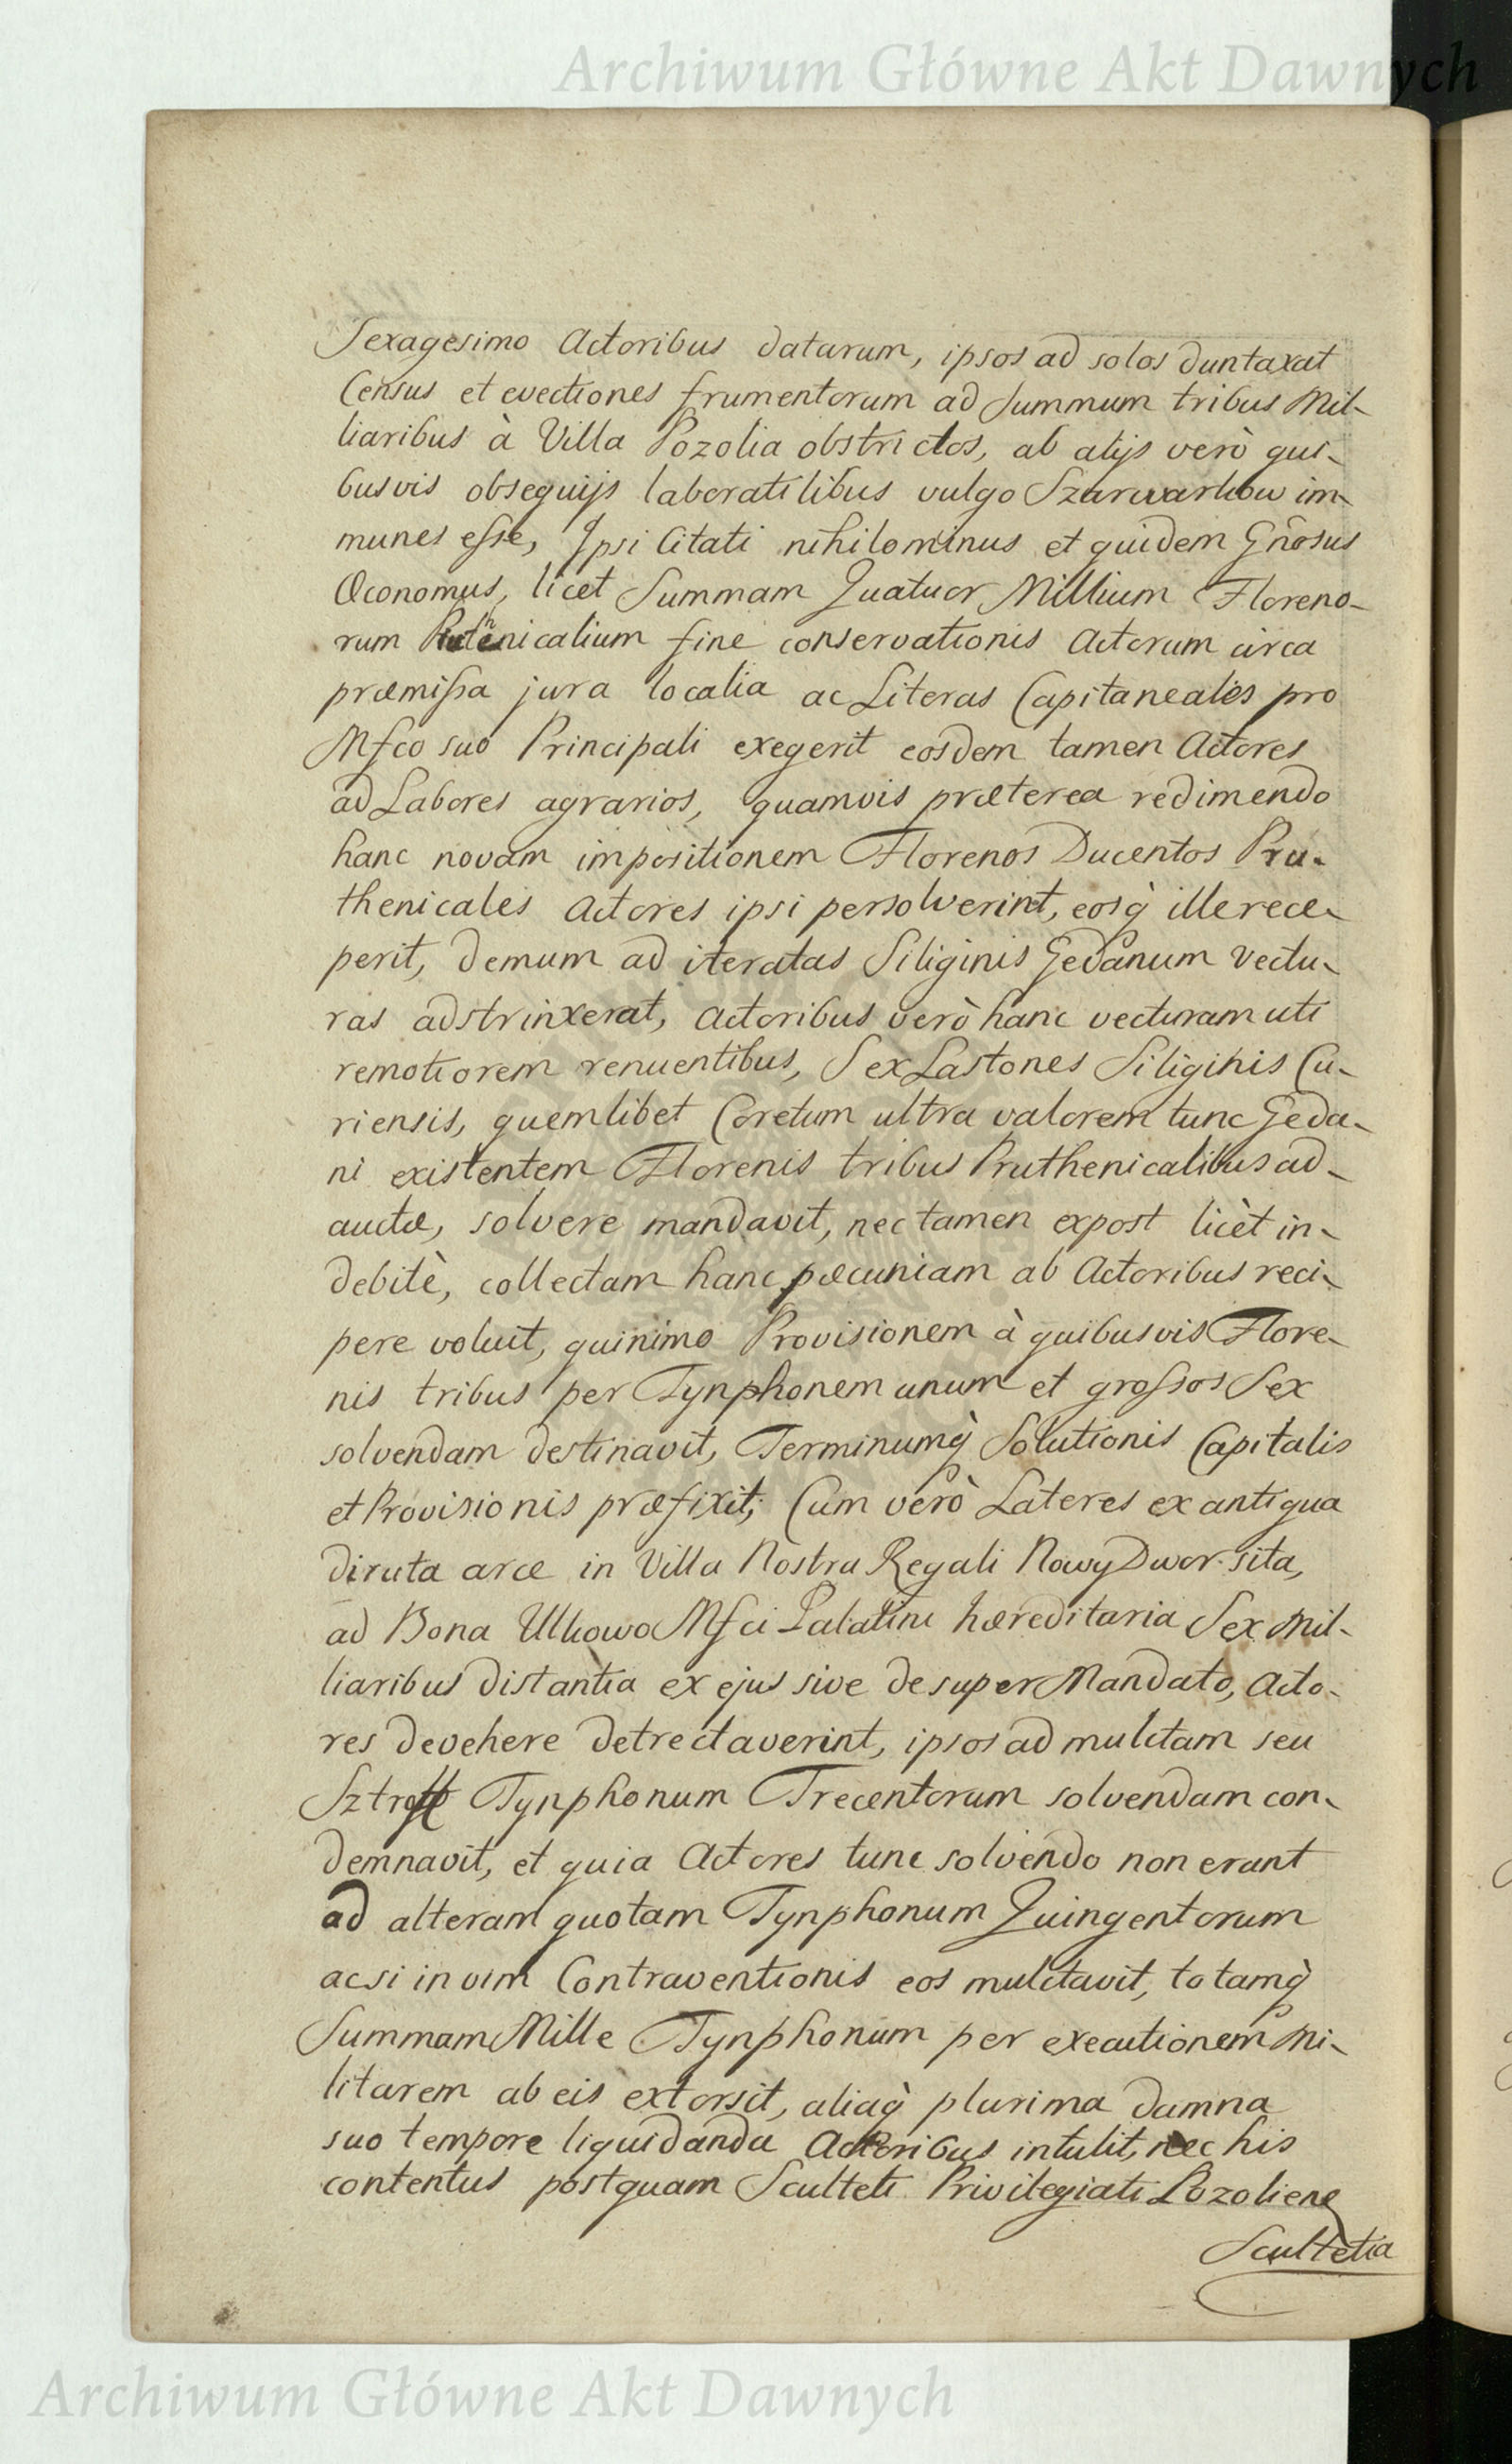 Archiwum Główne Akt Dawnych
Sexagesimo Actoribus datarum, ipsos ad solos duntaxat
Census et evectiones frumentorum ad summum tribus Mil-
liaribus à Villa Pozolia obstrictos, ab alijs verò qui-
busvis obsequijs laboratilibus vulgo Szarwarkow im-
munes esse, Ipsi Citati nihilominus et quidem Gñosus
Œconomus, licet Summam Quatuor Millium Floreno-
rum Pruthenicalium fine conservationis Actorum circa
præmissa jura localia ac Literas Capitaneales pro
Mfco suo Principali exegerit eosdem tamen Actores
ad Labores agrarios, quamvis præterea redimendo
hanc novam impositionem Florenos Ducentos Pru-
thenicales Actores ipsi persolverint, eosq̀ ille rece-
perit, demum ad iteratas Siliginis Gedanum vectu-
ras adstrinxerat, Actoribus verò hanc vecturam uti
remotiorem renuentibus, Sex Lastones Siliginis Cu-
riensis, quemlibet Coretum ultra valorem tunc Geda-
ni existentem Florenis tribus Pruthenicalibus ad-
auctæ, solvere mandavit, nec tamen expost licèt in-
debitè, collectam hanc pæcuniam ab Actoribus reci-
pere voluit, quinimo Provisionem à quibusvis Flore-
nis tribus per Tynphonem unum et grossos Sex
solvendam destinavit, Terminumq̀ Solutionis Capitalis
et Provisionis præfixit; Cum verò Lateres ex antiqua
diruta arce in Villa Nostra Regali Nowy Dwor sita,
ad Bona Ulkowo Mfci Palatini hæreditaria Sex Mil-
liaribus distantia ex ejus sive desuper Mandato, Acto-
res devehere detrectaverint, ipsos ad mulctam seu
Sztroff Tynphonum Trecentorum solvendam con-
demnavit, et quia Actores tunc solvendo non erant
ad alteram quotam Tynphonum Quingentorum
acsi in vim Contraventionis eos mulctavit, totamq̀
Summam Mille Tynphonum per executionem Mi-
litarem ab eis extorsit, aliaq̀ plurima damna
suo tempore liquidanda Actoribus intulit, nec his
contentus postquam Sculteti Privilegiati Pozoliens
Scultetia
Archiwum Główne Akt Dawnych